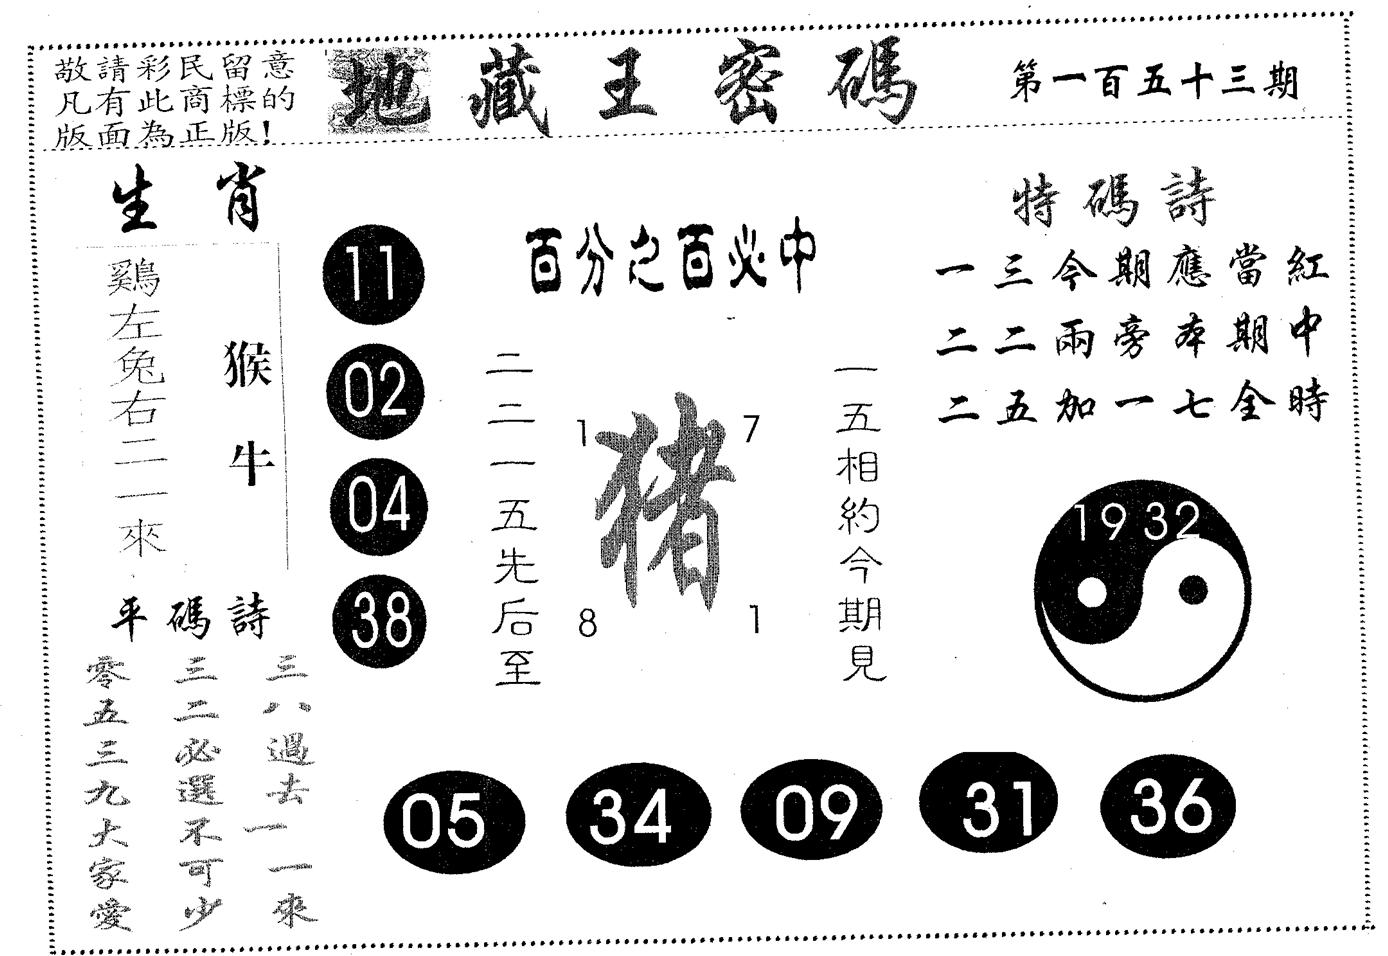 敬請彩民留意
凡有此商標的
版面為正版!
地藏王密碼
第一百五十三期
生肖
鷄左兔右二一來
猴牛
11
02
04
38
百分之百必中
二二一五先后至
1
7
猪
8
1
一五相約今期見
特碼詩
一三今期應當紅
二二兩旁本期中
二五加一七全時
19 32
平碼詩
三八過去一一來
三二必選不可少
零五三九大家愛
05
34
09
31
36